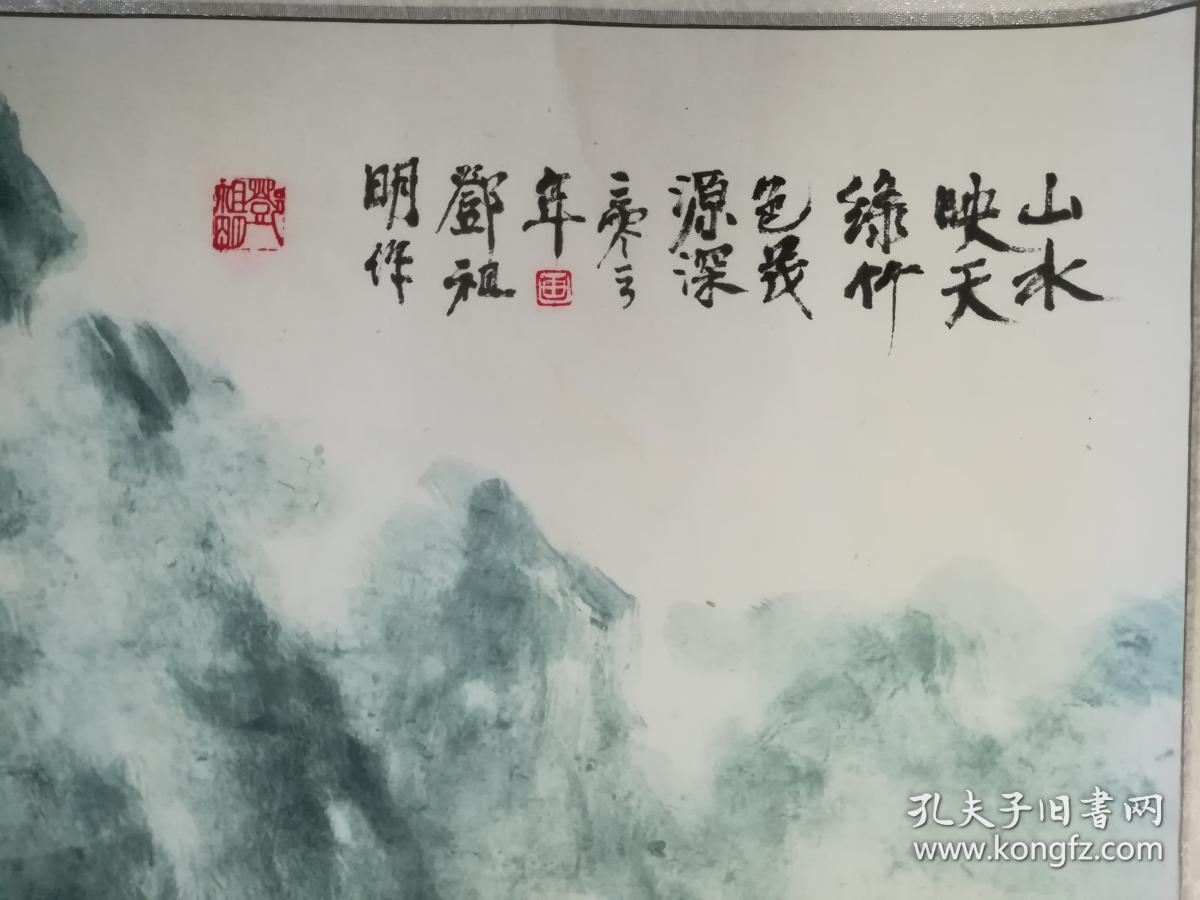 山水
映天
綠竹
色茂
源深
二零
年
鄧祖
明作
鄧祖明
孔夫子旧書网
www.kongfz.com